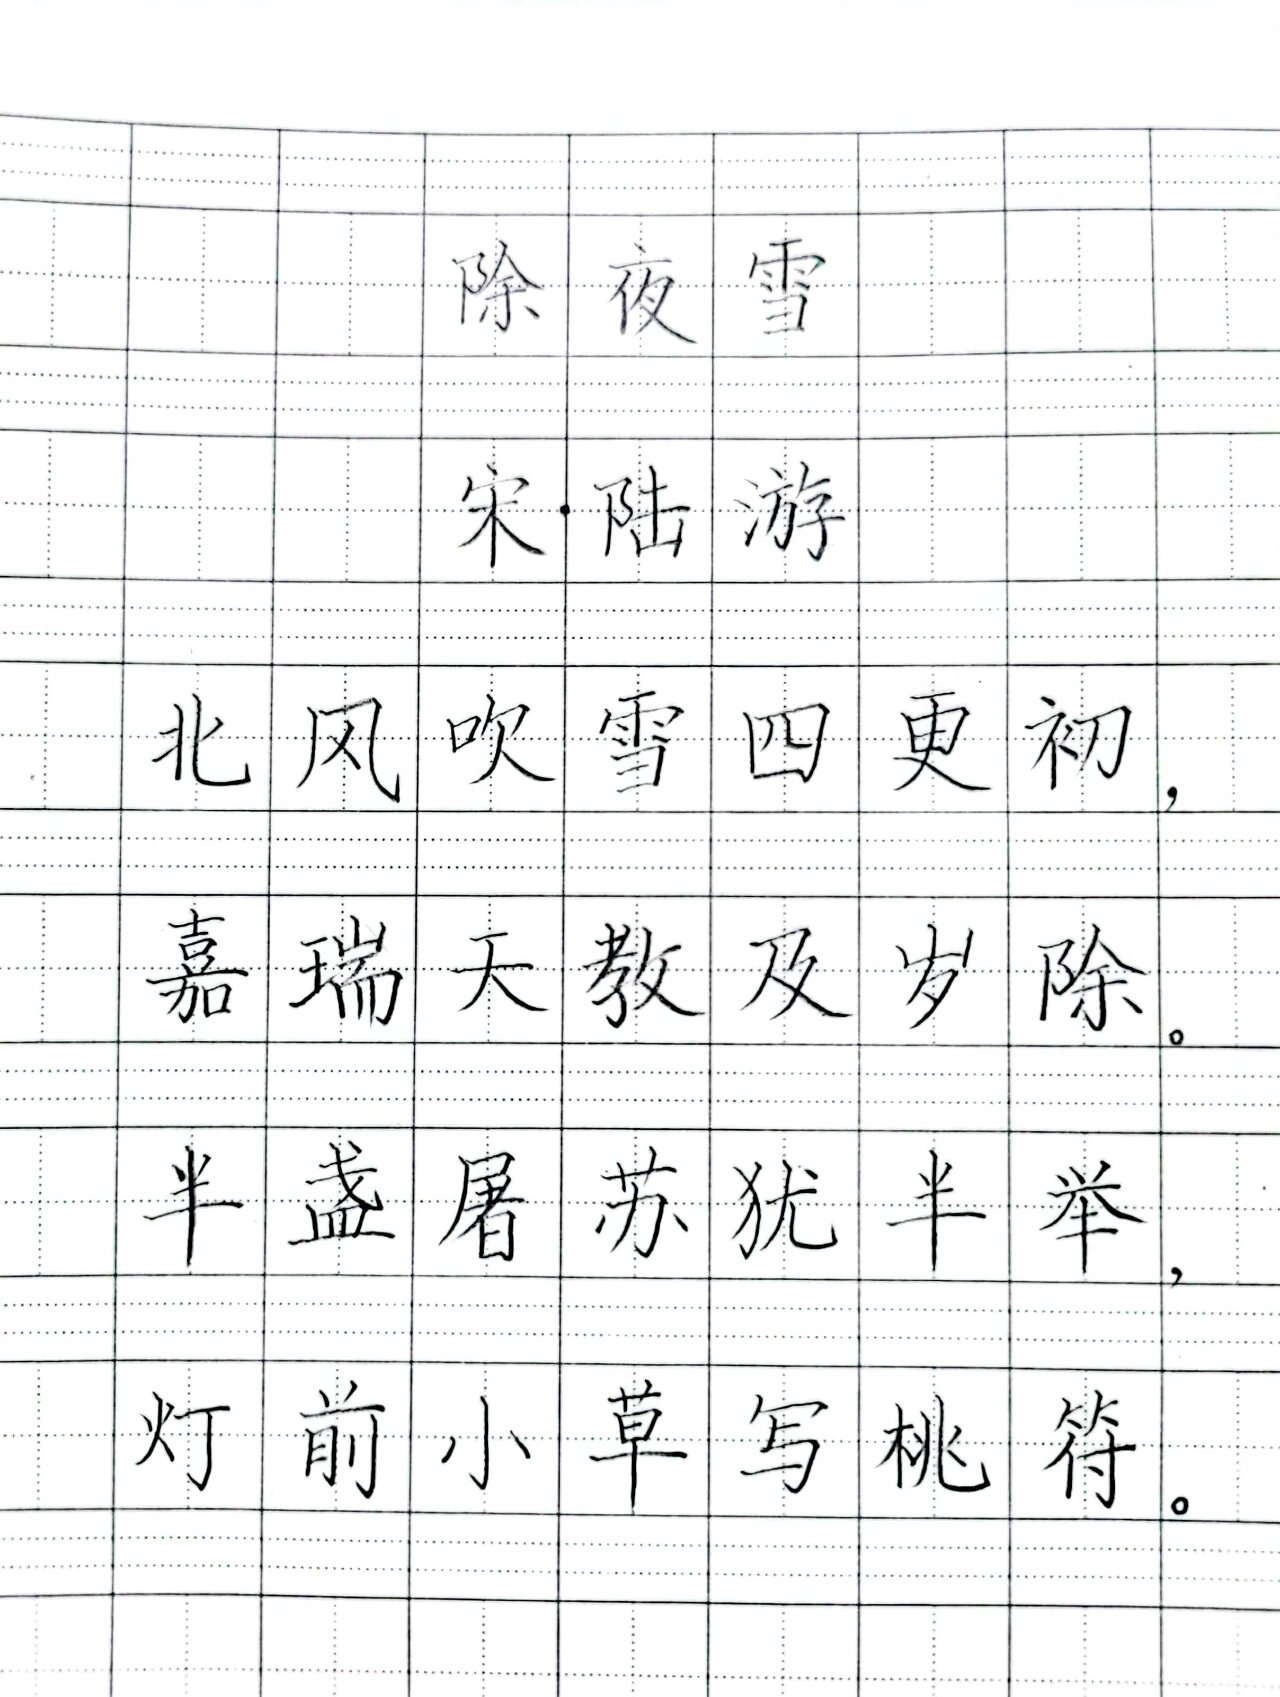 除夜雪
宋·陆游
北风吹雪四更初，
嘉瑞天教及岁除。
半盏屠苏犹半举，
灯前小草写桃符。